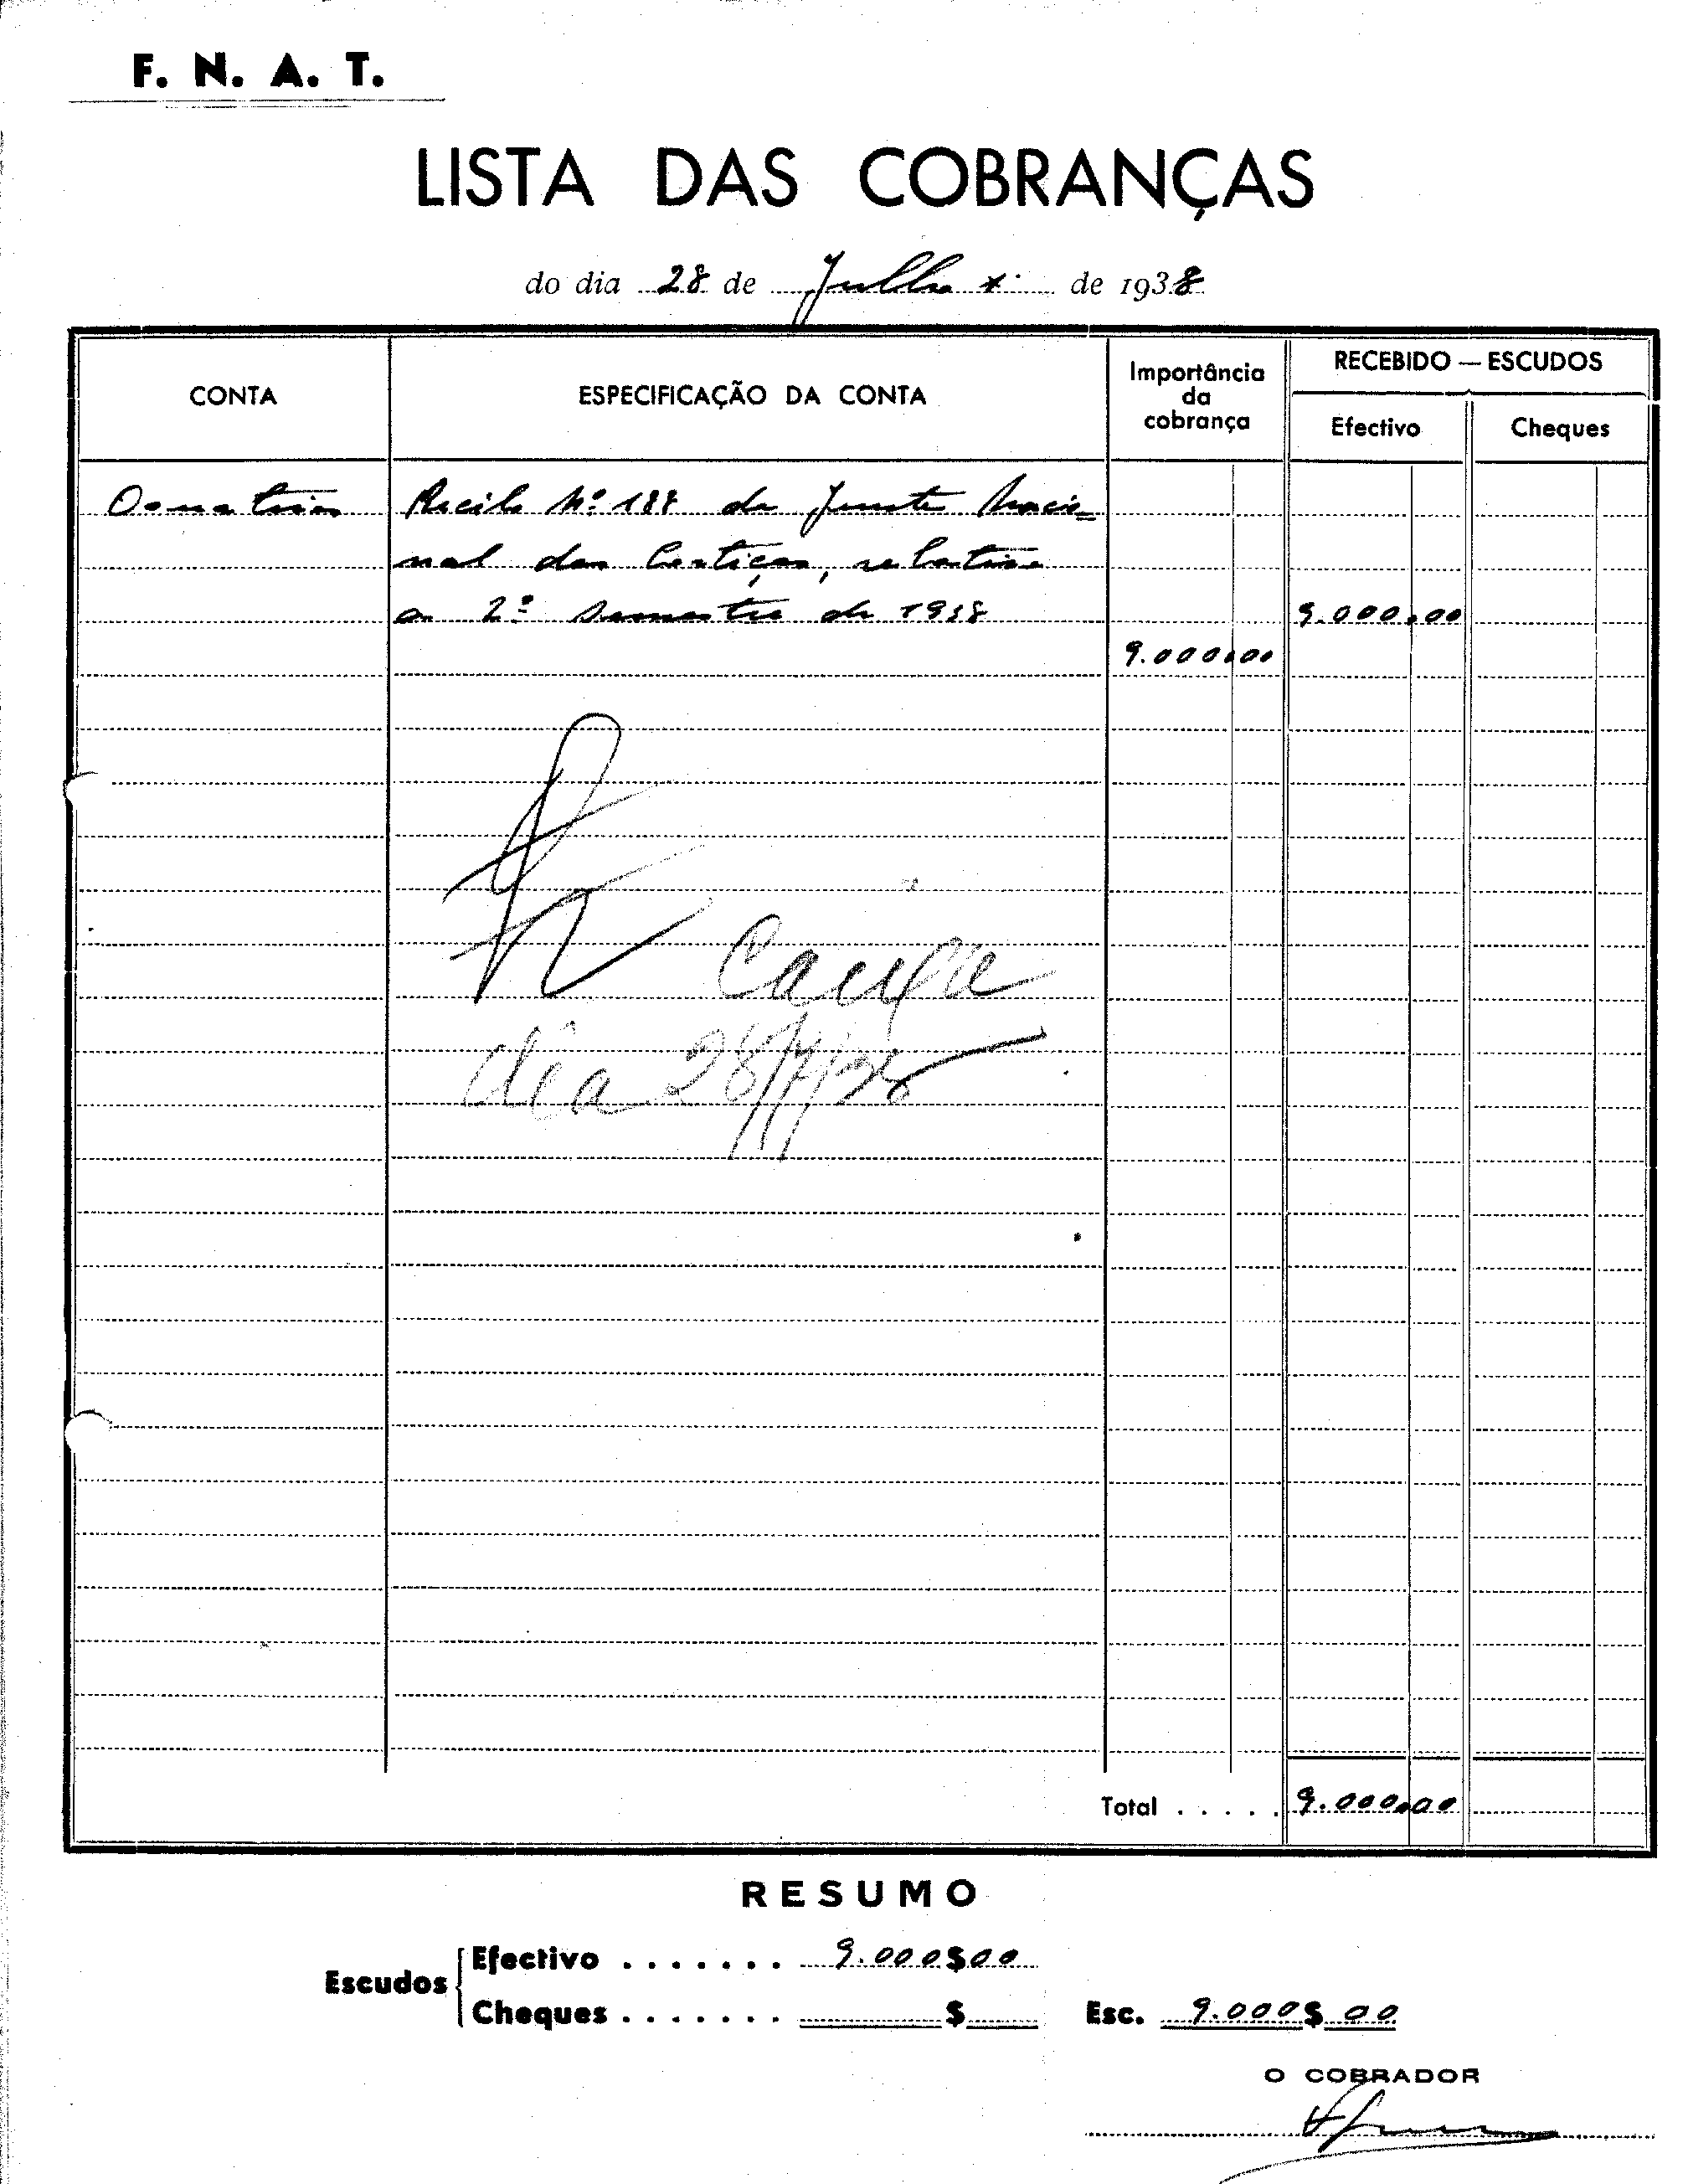 F. N. A. T.
LISTA DAS COBRANÇAS
do dia 28 de Julho de 1938
CONTA
ESPECIFICAÇÃO DA CONTA
Importância
da
cobrança
RECEBIDO — ESCUDOS
Efectivo
Cheques
Donativos Recibo Nº 188 da Junta Nacio-
nal das Cortiças, relativo
ao 2º semestre de 1938 9.000,00
9.000,00
Caixa
dia 28/7/38
Total . . . . . 9.000,00
RESUMO
Escudos
Efectivo . . . . . . . 9.000$00
Cheques . . . . . . . $
Esc. 9.000$00
O COBRADOR